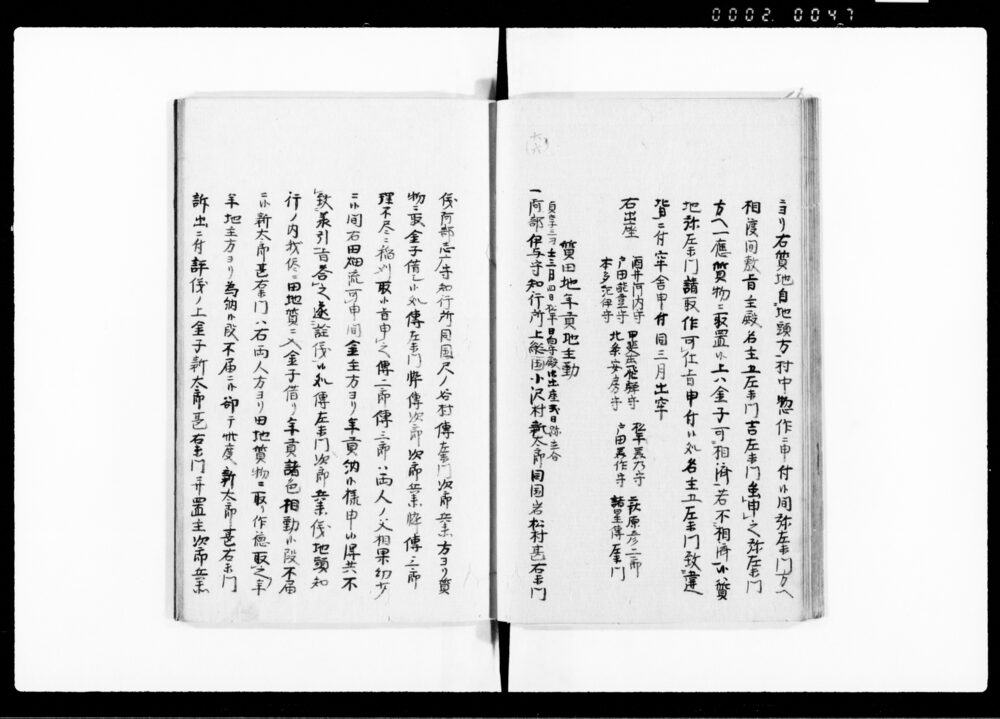 0002.0047
ニヨリ右質地自地頭方村中惣作ニ申付候間弥左衛門方ヘ
相渡間敷旨主殿名主五左衛門吉左衛門申之弥左衛門
方ヘ一應質物ニ取置候上ハ金子可相済若不相済候ハ質
地弥左衛門請取作可仕旨申付候処名主五左衛門致違
背ニ付牢舎申付同三月十出牢
右出座
酒井河内守
戸田能登守
本多紀伊守
甲斐庄飛騨守
北条安房守
松平美乃守
戸田美作守
萩原彦二郎
諸星傳左衛門
(六六)
質田地年貢地主勤
一阿部伊与守知行所上総国小沢村新太郎同国岩松村甚右衛門
儀阿部志广守知行所同国尺ノ谷村傳左衛門次郎兵衛方ヨリ質
物ニ取金子借シ候処傳左衛門弊傳次郎次郎兵衛弊傳三郎
理不尽ニ稲刈取候旨申之傳二郎傳三郎ハ両人ノ父相果幼少
ニ候間右田畑流可申間金主方ヨリ年貢納候様申候得共不
致承引旨答之遂詮儀候処傳左衛門次郎兵衛儀地頭知
行ノ内我侭ニ田地質ニ入金子借り年貢諸色相勤候段不届
ニ候新太郎甚右衛門ハ右両人方ヨリ田地質物ニ取リ作徳取之年
年地主方ヨリ為納候段不届ニ候却テ此度新太郎甚右衛門
訴出ニ付評儀ノ上金子新太郎甚右衛門ニ弁置主次郎兵衛